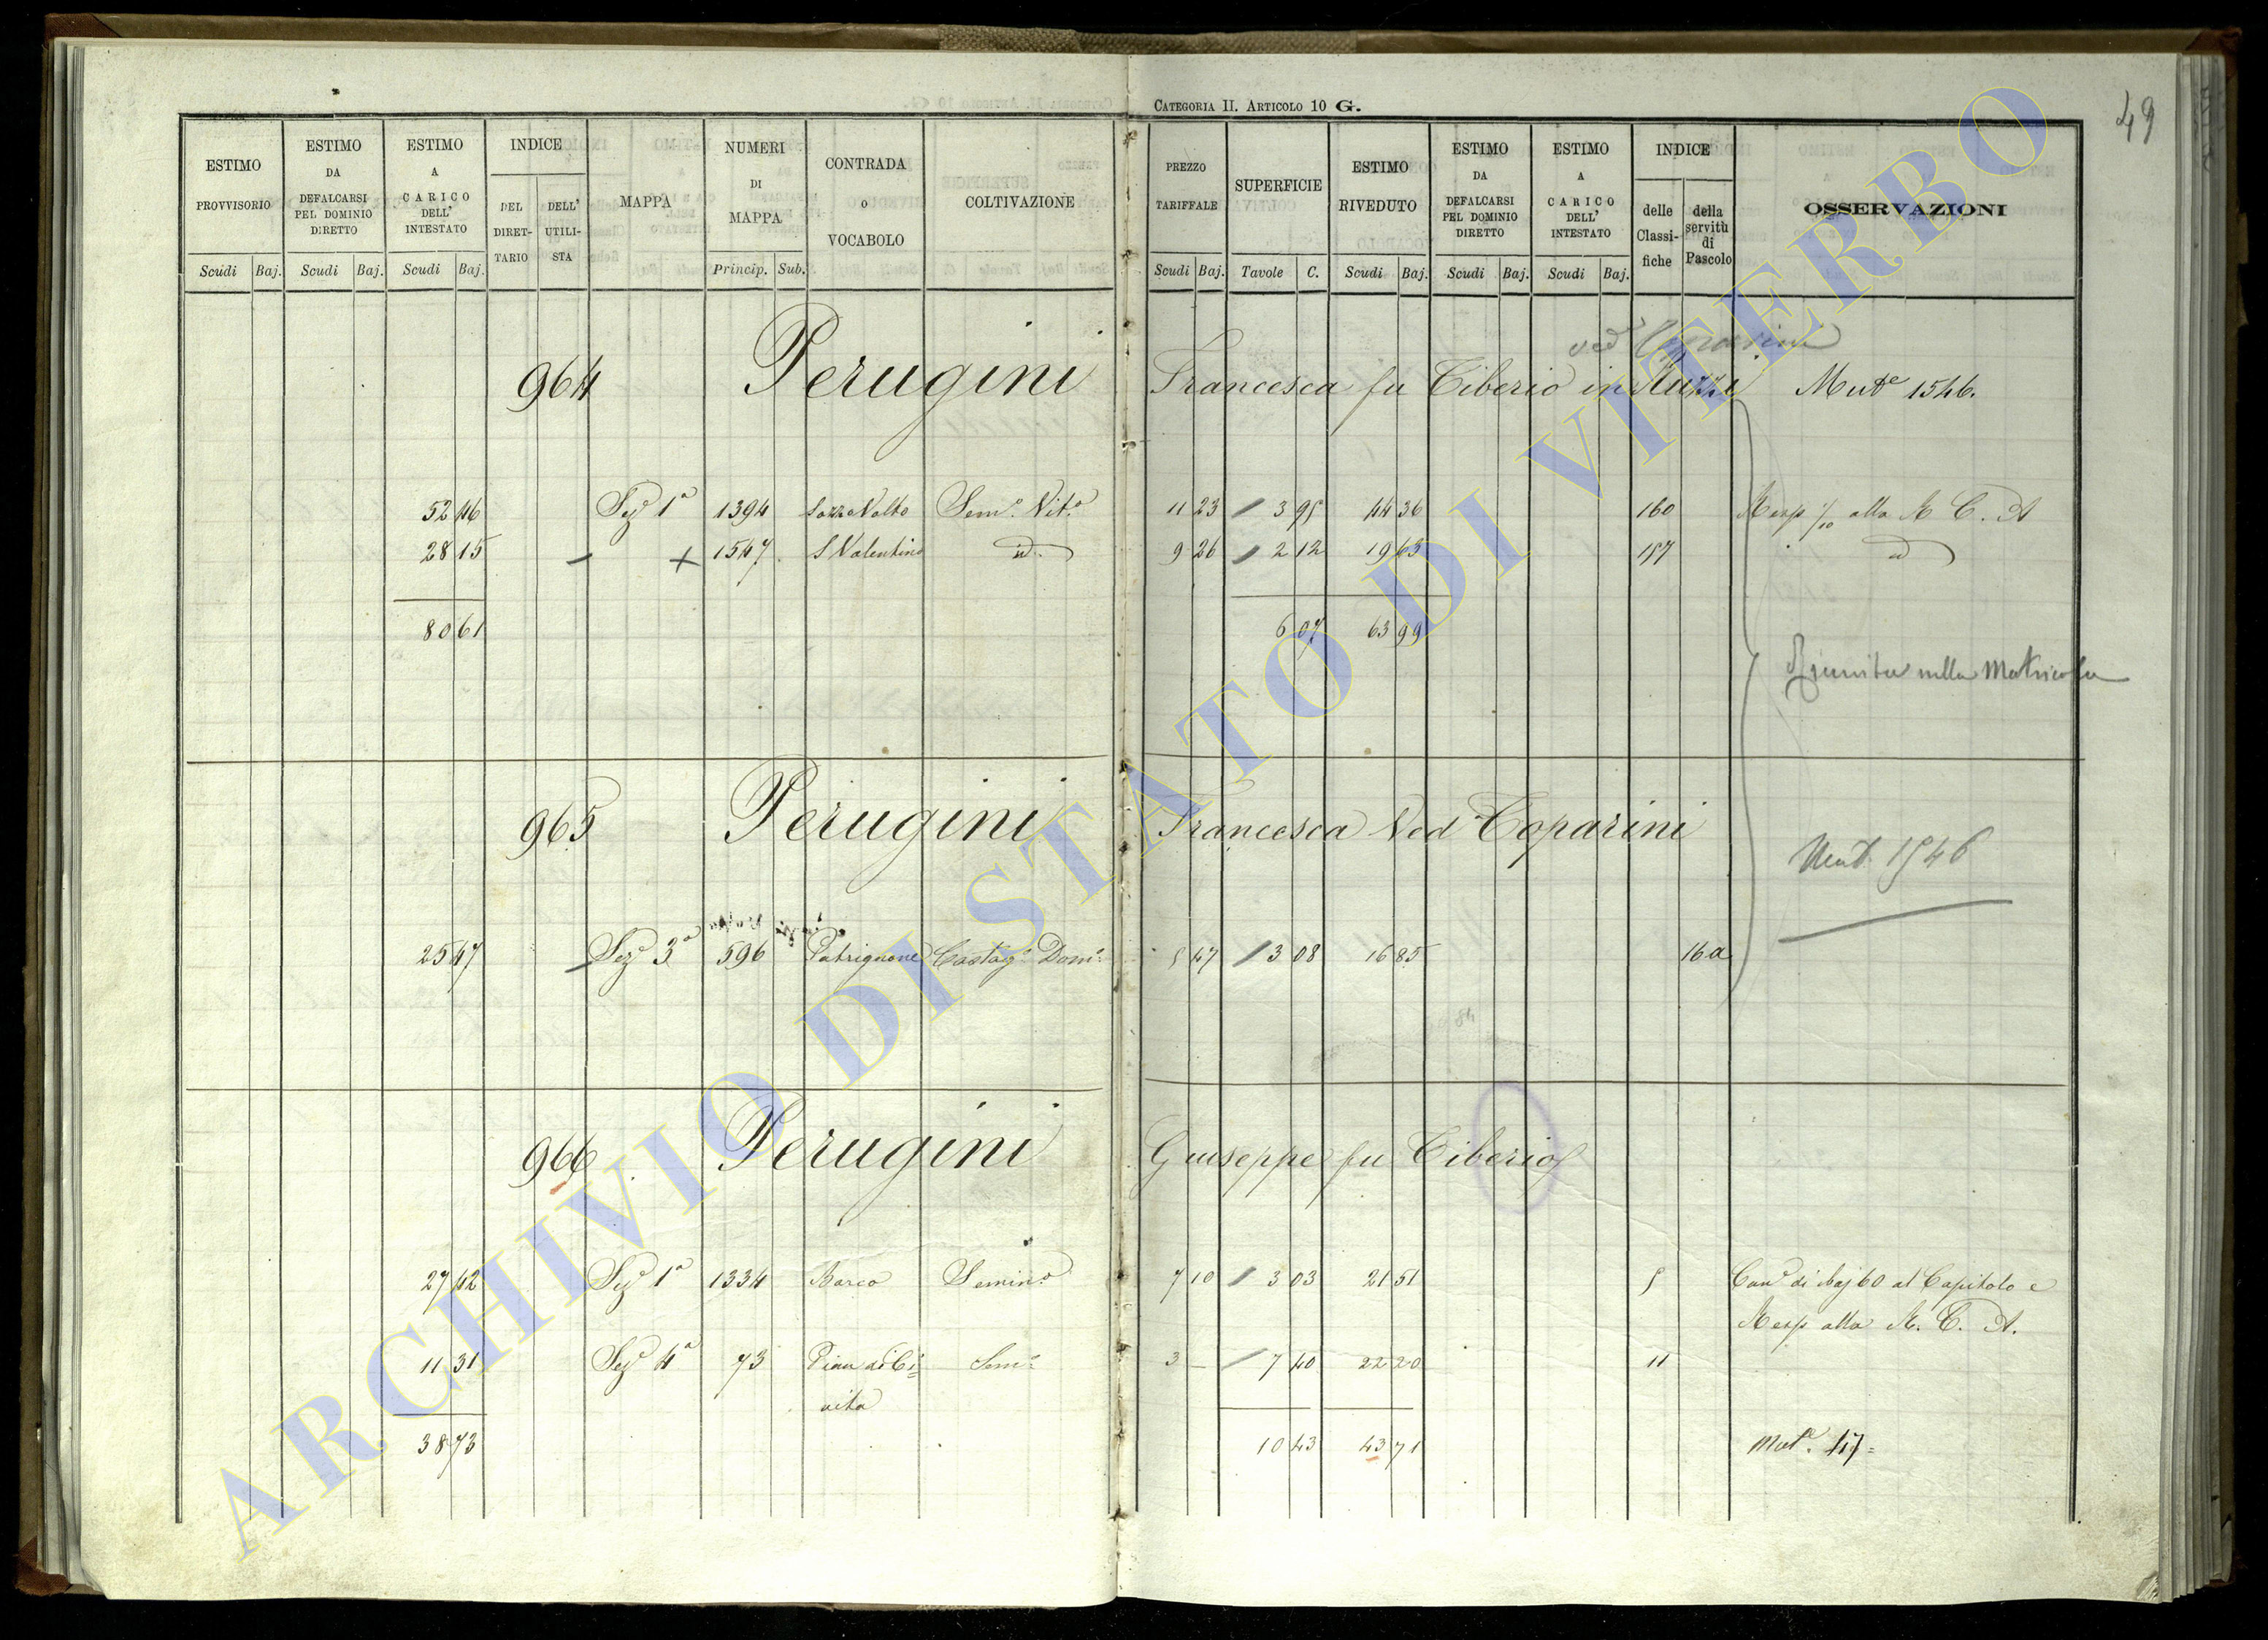 CATEGORIA II. ARTICOLO 10 G.
49
ESTIMO PROVVISORIO
Scudi Baj.
ESTIMO DA DEFALCARSI PEL DOMINIO DIRETTO
Scudi Baj.
ESTIMO A CARICO DELL' INTESTATO
Scudi Baj.
INDICE
DEL DIRET-TARIO
DELL' UTILI-STA
MAPPA
NUMERI DI MAPPA
Princip. Sub.
CONTRADA o VOCABOLO
COLTIVAZIONE
PREZZO TARIFFALE
Scudi Baj.
SUPERFICIE
Tavole C.
ESTIMO RIVEDUTO
Scudi Baj.
ESTIMO DA DEFALCARSI PEL DOMINIO DIRETTO
Scudi Baj.
ESTIMO A CARICO DELL' INTESTATO
Scudi Baj.
INDICE
delle Classi-fiche
della servitù di Pascolo
OSSERVAZIONI
ved Coparini
964 Perugini Francesca fu Tiberio in Mut.e 1546.
52 46 Sez.e 1a 1394 Sem.o Vit.o 11 23 3 95 44 36 160 Resp alla R C. A
28 15 1547 S Valentino id. 9 26 2 12 19 63 157 id
80 61 6 07 63 99
Riunita nella Matricola
965 Perugini Francesca Ved Coparini
Mut. 1546
25 47 Sez.e 3a 596 Patrignone Castag.o Dom.o 5 47 3 08 16 85 16a
966 Perugini Giuseppe fu Tiberio
27 42 Sez.e 1a 1334 Barco Semin.o 7 10 3 03 21 51 5 Can.e di Baj 60 al Capitolo e
Resp alla R. C. A.
11 31 Sez.e 4a 73 Pian di Ci= Sem.o 3 — 7 40 22 20 11
vita
38 73 10 43 43 71 Mut.e 417=
ARCHIVIO DI STATO DI VITERBO